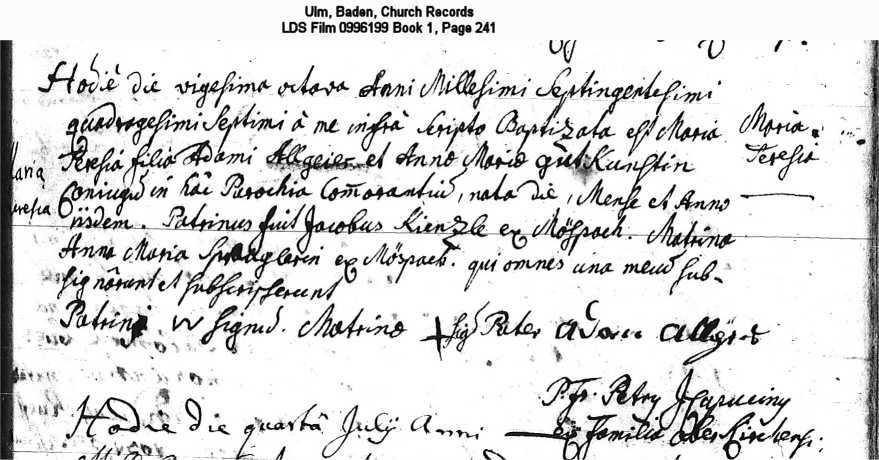 Ulm, Baden, Church Records
LDS Film 0996199 Book 1, Page 241
Hodie die vigesima octava Anni Millesimi Septingentesimi
quadragesimi Septimi à me infrà scripto Baptizata est Maria
Teresia filia Adami Allgeier et Annæ Mariæ gutKunstin
Coniugũ in hâc Parochia Com̃orantiũ, nata die, Mense et Anno
iisdem. Patrinus fuit Jacobus Kienzle ex Möspach. Matrina
Anna Maria Spraulerin ex Möspach. qui omnes una mecũ sub-
signârant et subscripserunt
Maria
Teresia
Maria
Teresia
Patrini W signũ. Matrinæ + sig Pater adam allgeier
P. Fr. Petry Capuciny
ex familia oberkirchensi.
Hodie die quartâ Julij Anni